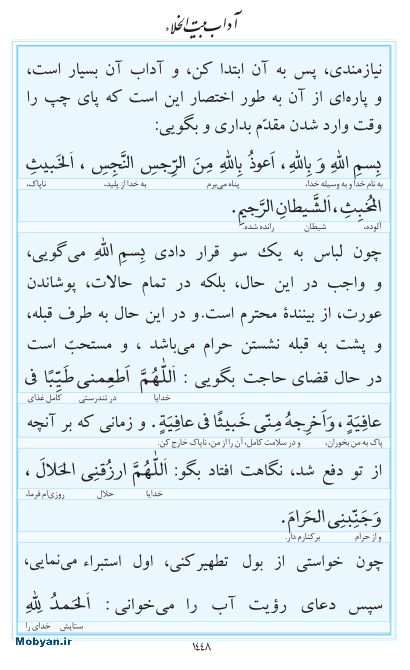 آداب بیت الخلاء
نیازمندی، پس به آن ابتدا کن، و آداب آن بسیار است،
و پاره‌ای از آن به طور اختصار این است که پای چپ را
وقت وارد شدن مقدّم بداری و بگویی:
بِسمِ اللهِ وَ بِاللهِ، اَعوذُ بِاللهِ مِنَ الرِّجسِ النَّجِسِ، اَلخَبیثِ
به نام خدا و به وسیله خدا، پناه می‌برم به خدا از پلید، ناپاک،
المُخبِثِ، اَلشَّیطانِ الرَّجیمِ.
آلوده، شیطان رانده شده.
چون لباس به یک سو قرار دادی بِسمِ اللهِ می‌گویی،
و واجب در این حال، بلکه در تمام حالات، پوشاندن
عورت، از بینندهٔ محترم است. و در این حال به طرف قبله،
و پشت به قبله نشستن حرام می‌باشد، و مستحبّ است
در حال قضای حاجت بگویی: اَللّٰهُمَّ اَطعِمنی طَیِّبًا فی
خدایا در تندرستی کامل غذای
عافِیَةٍ، وَ اَخرِجهُ مِنّی خَبیثًا فی عافِیَةٍ. و زمانی که بر آنچه
پاک به من بخوران، و در سلامت کامل، آن را از من، ناپاک خارج کن.
از تو دفع شد، نگاهت افتاد بگو: اَللّٰهُمَّ ارزُقنِی الحَلالَ،
خدایا حلال روزی‌ام فرما،
وَ جَنِّبنِی الحَرامَ.
و از حرام برکنارم دار.
چون خواستی از بول تطهیرکنی، اول استبراء می‌نمایی،
سپس دعای رؤیت آب را می‌خوانی: اَلحَمدُ لِلّٰهِ
ستایش خدای را
Mobyan.ir
۱۴۴۸